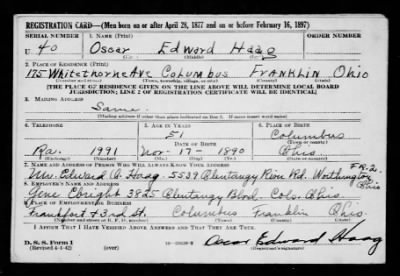 REGISTRATION CARD—(Men born on or after April 28, 1877 and on or before February 16, 1897)
SERIAL NUMBER 1. NAME (Print) ORDER NUMBER
U 40 Oscar Edward Haag
(First) (Middle) (Last)
2. PLACE OF RESIDENCE (Print)
175 Whitethorne Ave Columbus Franklin Ohio
(Number and street) (Town, township, village, or city) (County) (State)
[THE PLACE OF RESIDENCE GIVEN ON THE LINE ABOVE WILL DETERMINE LOCAL BOARD
JURISDICTION; LINE 2 OF REGISTRATION CERTIFICATE WILL BE IDENTICAL]
3. MAILING ADDRESS
Same
[Mailing address if other than place indicated on line 2. If same insert word same]
4. TELEPHONE 5. AGE IN YEARS 6. PLACE OF BIRTH
51 Columbus
DATE OF BIRTH (Town or county)
Ra. 1991 Nov-17-1890 Ohio
(Exchange) (Number) (Mo.) (Day) (Yr.) (State or country)
7. NAME AND ADDRESS OF PERSON WHO WILL ALWAYS KNOW YOUR ADDRESS FR-2.
Mr. Edward A. Haag - 5539 Olentangy River Rd. Worthington Ohio
8. EMPLOYER'S NAME AND ADDRESS
Gene Ebright 3825 Olentangy Blvd. Cols. Ohio.
9. PLACE OF EMPLOYMENT OR BUSINESS
Frankfort & 3rd St. Columbus Franklin Ohio.
(Number and street or R. F. D. number) (Town) (County) (State)
I AFFIRM THAT I HAVE VERIFIED ABOVE ANSWERS AND THAT THEY ARE TRUE.
D. S. S. Form 1
(Revised 4-1-42) (over) Oscar Edward Haag
(Registrant's signature)